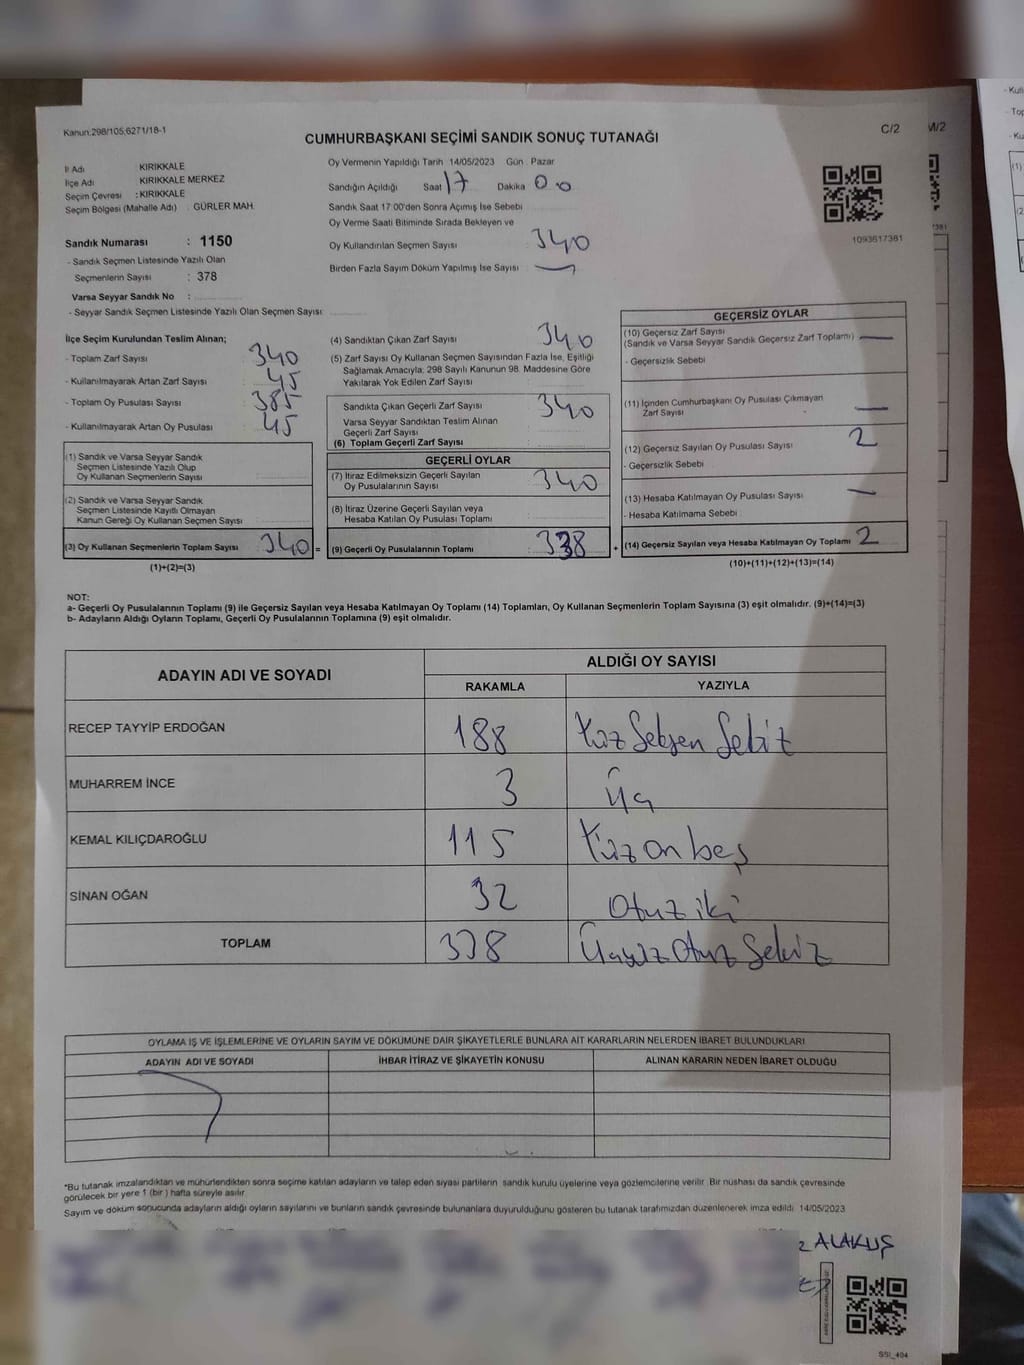 Kanun:298/105;6271/18-1
C/2
M/2
CUMHURBAŞKANI SEÇİMİ SANDIK SONUÇ TUTANAĞI
İl Adı : KIRIKKALE
İlçe Adı : KIRIKKALE MERKEZ
Seçim Çevresi : KIRIKKALE
Seçim Bölgesi (Mahalle Adı) : GÜRLER MAH.
Oy Vermenin Yapıldığı Tarih 14/05/2023 Gün : Pazar
Sandığın Açıldığı Saat 17 Dakika 00
Sandık Saat 17:00'den Sonra Açımış İse Sebebi
Oy Verme Saati Bitiminde Sırada Bekleyen ve
Oy Kullandırılan Seçmen Sayısı 340
Birden Fazla Sayım Döküm Yapılmış İse Sayısı : —
1093617361
Sandık Numarası : 1150
- Sandık Seçmen Listesinde Yazılı Olan
Seçmenlerin Sayısı : 378
Varsa Seyyar Sandık No :
- Seyyar Sandık Seçmen Listesinde Yazılı Olan Seçmen Sayısı :
İlçe Seçim Kurulundan Teslim Alınan;
- Toplam Zarf Sayısı 340
- Kullanılmayarak Artan Zarf Sayısı 45
- Toplam Oy Pusulası Sayısı 385
- Kullanılmayarak Artan Oy Pusulası 45
(1) Sandık ve Varsa Seyyar Sandık
Seçmen Listesinde Yazılı Olup
Oy Kullanan Seçmenlerin Sayısı
(2) Sandık ve Varsa Seyyar Sandık
Seçmen Listesinde Kayıtlı Olmayan
Kanun Gereği Oy Kullanan Seçmen Sayısı
(3) Oy Kullanan Seçmenlerin Toplam Sayısı 340 =
(1)+(2)=(3)
(4) Sandıktan Çıkan Zarf Sayısı 340
(5) Zarf Sayısı Oy Kullanan Seçmen Sayısından Fazla İse, Eşitliği
Sağlamak Amacıyla; 298 Sayılı Kanunun 98. Maddesine Göre
Yakılarak Yok Edilen Zarf Sayısı
Sandıkta Çıkan Geçerli Zarf Sayısı 340
Varsa Seyyar Sandıktan Teslim Alınan
Geçerli Zarf Sayısı
(6) Toplam Geçerli Zarf Sayısı
GEÇERLİ OYLAR
(7) İtiraz Edilmeksizin Geçerli Sayılan
Oy Pusulalarının Sayısı 340
(8) İtiraz Üzerine Geçerli Sayılan veya
Hesaba Katılan Oy Pusulası Toplamı
(9) Geçerli Oy Pusulalarının Toplamı 338 +
GEÇERSİZ OYLAR
(10) Geçersiz Zarf Sayısı
(Sandık ve Varsa Seyyar Sandık Geçersiz Zarf Toplamı) —
- Geçersizlik Sebebi
(11) İçinden Cumhurbaşkanı Oy Pusulası Çıkmayan
Zarf Sayısı —
(12) Geçersiz Sayılan Oy Pusulası Sayısı 2
- Geçersizlik Sebebi
(13) Hesaba Katılmayan Oy Pusulası Sayısı —
- Hesaba Katılmama Sebebi
(14) Geçersiz Sayılan veya Hesaba Katılmayan Oy Toplamı 2
(10)+(11)+(12)+(13)=(14)
NOT:
a- Geçerli Oy Pusulalarının Toplamı (9) ile Geçersiz Sayılan veya Hesaba Katılmayan Oy Toplamı (14) Toplamları, Oy Kullanan Seçmenlerin Toplam Sayısına (3) eşit olmalıdır. (9)+(14)=(3)
b- Adayların Aldığı Oyların Toplamı, Geçerli Oy Pusulalarının Toplamına (9) eşit olmalıdır.
ADAYIN ADI VE SOYADI
ALDIĞI OY SAYISI
RAKAMLA YAZIYLA
RECEP TAYYİP ERDOĞAN 188 Yüz Seksen Sekiz
MUHARREM İNCE 3 Üç
KEMAL KILIÇDAROĞLU 115 Yüz on beş
SİNAN OĞAN 32 Otuz iki
TOPLAM 338 Üçyüz Otuz Sekiz
OYLAMA İŞ VE İŞLEMLERİNE VE OYLARIN SAYIM VE DÖKÜMÜNE DAİR ŞİKAYETLERLE BUNLARA AİT KARARLARIN NELERDEN İBARET BULUNDUKLARI
ADAYIN ADI VE SOYADI İHBAR İTİRAZ VE ŞİKAYETİN KONUSU ALINAN KARARIN NEDEN İBARET OLDUĞU
*Bu tutanak imzalandıktan ve mühürlendikten sonra seçime katılan adayların ve talep eden siyasi partilerin sandık kurulu üyelerine veya gözlemcilerine verilir. Bir nüshası da sandık çevresinde
görülecek bir yere 1 (bir) hafta süreyle asılır.
Sayım ve döküm sonucunda adayların aldığı oyların sayılarını ve bunların sandık çevresinde bulunanlara duyurulduğunu gösteren bu tutanak tarafımızdan düzenlenerek imza edildi. 14/05/2023
ALAKUŞ
SSI_404